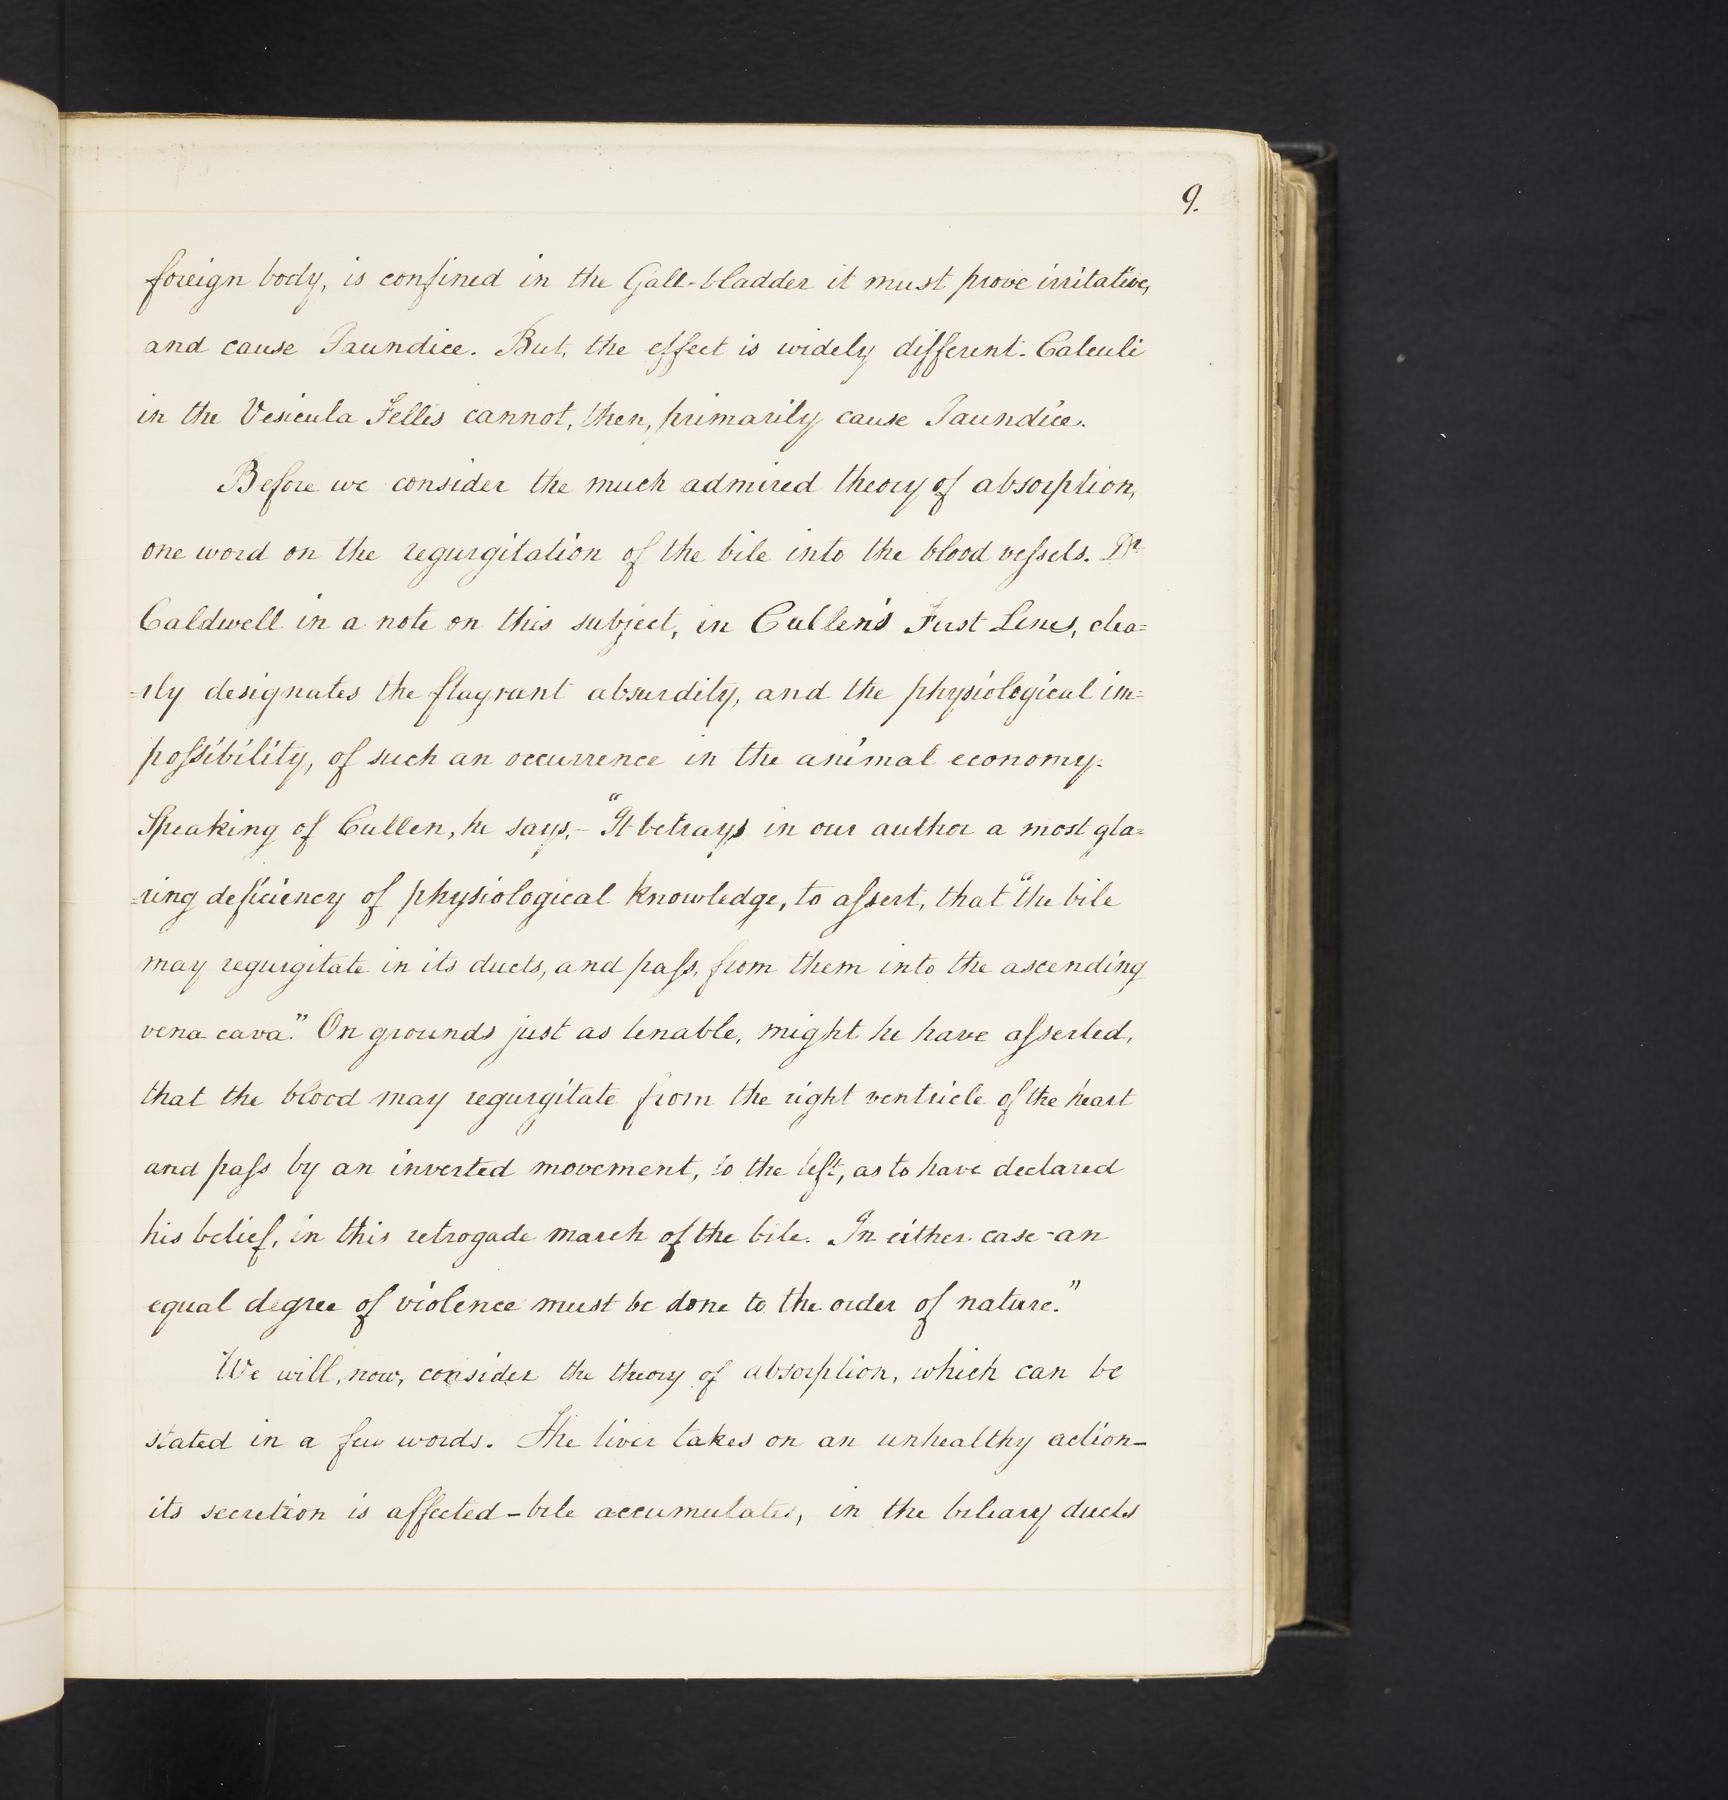 9.
foreign body, is confined in the Gall-bladder it must prove irritative,
and cause Jaundice. But, the effect is widely different. Calculi
in the Vesicula Fellis cannot, then, primarily cause Jaundice.
Before we consider the much admired theory of absorption,
one word on the regurgitation of the bile into the blood vessels. Dr
Caldwell in a note on this subject, in Cullen's First Lines, clea=
=rly designates the flagrant absurdity, and the physiological im=
possibility, of such an occurrence in the animal economy.
Speaking of Cullen, he says,- "It betrays in our author a most gla=
=ring deficiency of physiological knowledge, to assert, that "the bile
may regurgitate in its ducts, and pass, from them into the ascending
vena cava." On grounds just as tenable, might he have asserted,
that the blood may regurgitate from the right ventricle of the heart
and pass by an inverted movement, to the left, as to have declared
his belief, in this retrogade march of the bile. In either case - an
equal degree of violence must be done to the order of nature."
We will, now, consider the theory of absorption, which can be
stated in a few words. The liver takes on an unhealthy action-
its secretion is affected - bile accumulates, in the biliary ducts